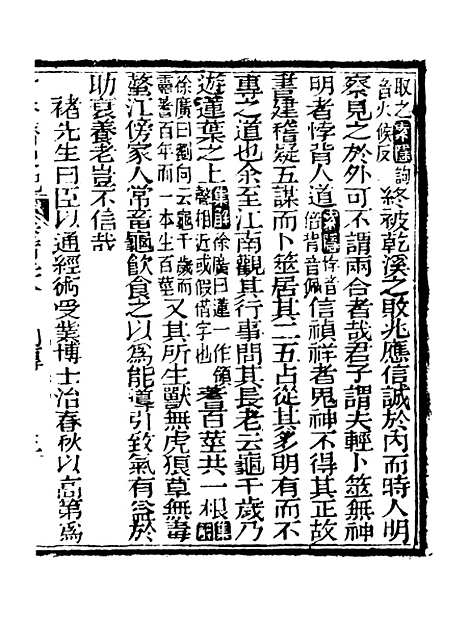 取之【索隱訽音火候反】終被乾溪之敗兆應信誠於內而時人明
察見之於外可不謂兩合者哉君子謂夫輕卜筮無神
明者悖背人道【索隱悖音倍背音佩】信禎祥者鬼神不得其正故
書建稽疑五謀而卜筮居其二五占從其多明有而不
專之道也余至江南觀其行事問其長老云龜千歲乃
遊蓮葉之上【集解徐廣曰蓮一作領領與蓮聲相近或假借字也】蓍百莖共一根【集解
徐廣曰劉向云龜千歲而靈蓍百年而一本生百莖】又其所生獸無虎狼草無毒
螫江傍家人常畜龜飲食之以爲能導引致氣有益於
助衰養老豈不信哉
褚先生曰臣以通經術受業博士治春秋以高第爲